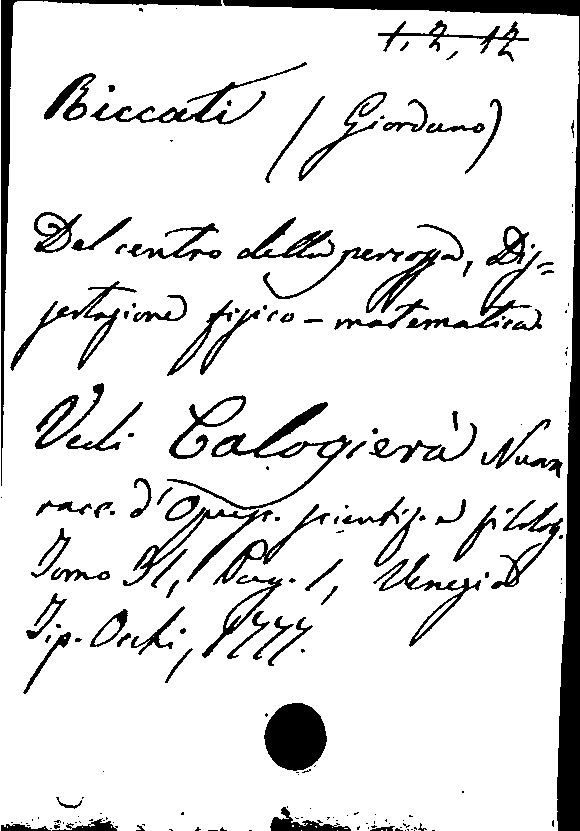 1, 2, 12
Riccati (Giordano)
Del centro della percossa, Dis=
sertazione fisico-matematica
Vedi Calogierà Nuova
racc. d'Opusc. scientif. e filolog.
Tomo 31, Pag. 1, Venezia
Tip. Occhi, 1777.